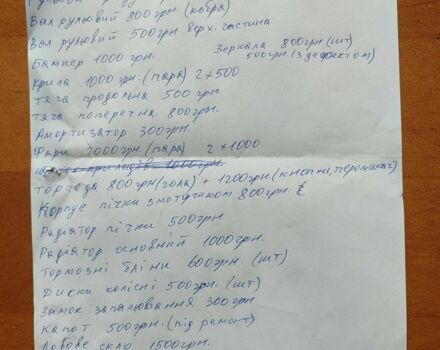 Вал рульовий 800грн (кобра)
Вал рульовий 500грн. верх. частина
Бампер 1000 грн.
Зеркала 800грн (шт)
500грн. (з дефектом)
Крила 1000 грн. (пара) 2×500
Тяга продольна 500 грн
Тяга поперечна 800грн.
Амортизатор 300грн.
Фари 2000грн (пара) 2×1000
приладів 1000грн.
Торпеда 800грн (гола) + 1200грн. (кнопки, перемикач)
Корпус пічки з моторчиком 800грн.
Радіатор пічки 500грн
Радіатор основний 1000грн.
Тормозні бліни 600грн. (шт)
Диски колісні 500грн. (шт)
Замок запалювання 300грн.
Капот 500грн. (під ремонт)
Лобове скло 1500грн.